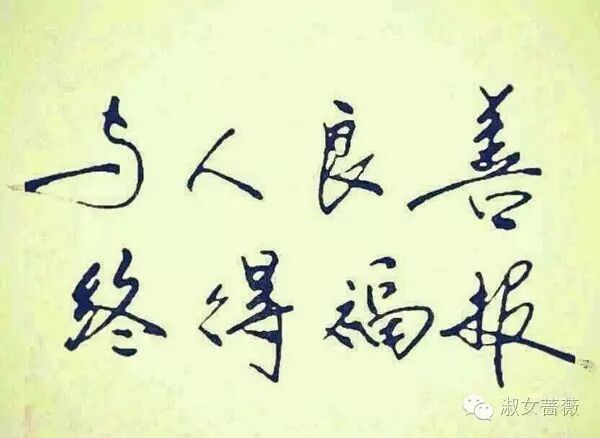 与人良善
终得福报
淑女蔷薇